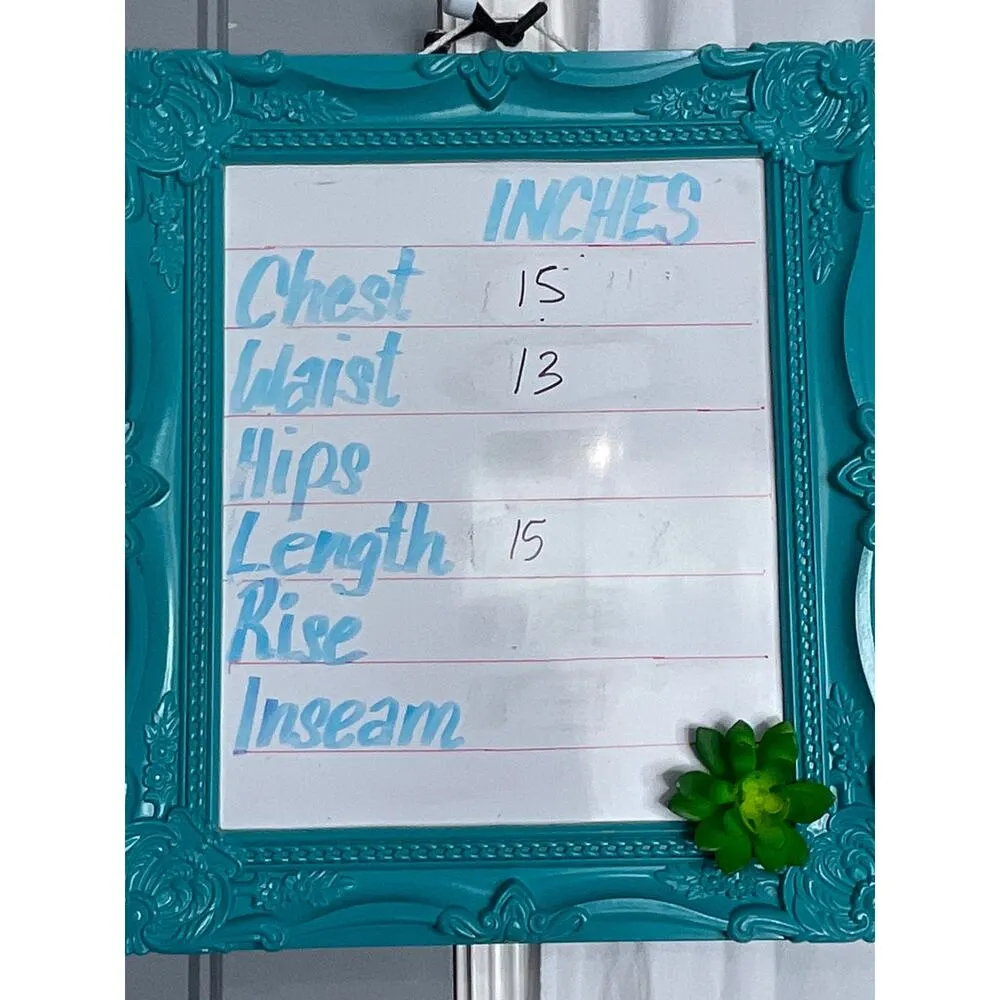 INCHES
Chest 15
Waist 13
Hips
Length 15
Rise
Inseam